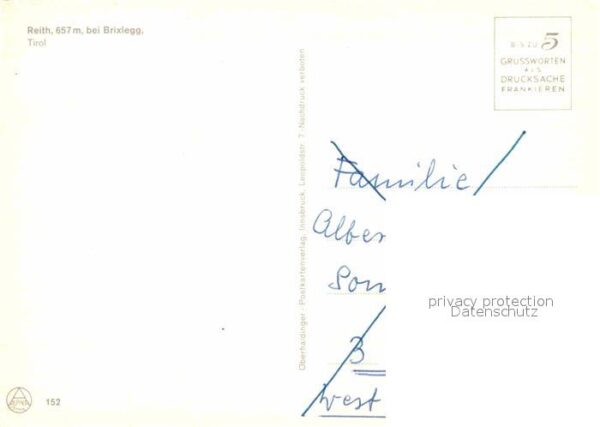 Reith, 657 m, bei Brixlegg,
Tirol
BIS ZU 5
GRUSSWORTEN
ALS
DRUCKSACHE
FRANKIEREN
Oberhaidinger · Postkartenverlag, Innsbruck, Leopoldstr. 7 · Nachdruck verboten
Familie
Alber
Son
B
West
privacy protection
Datenschutz
152